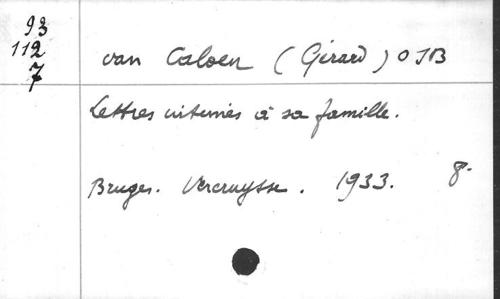 93
112
7
van Caloen (Gérard) OSB
Lettres intimes à sa famille.
Bruges. Vercruysse. 1933. 8-